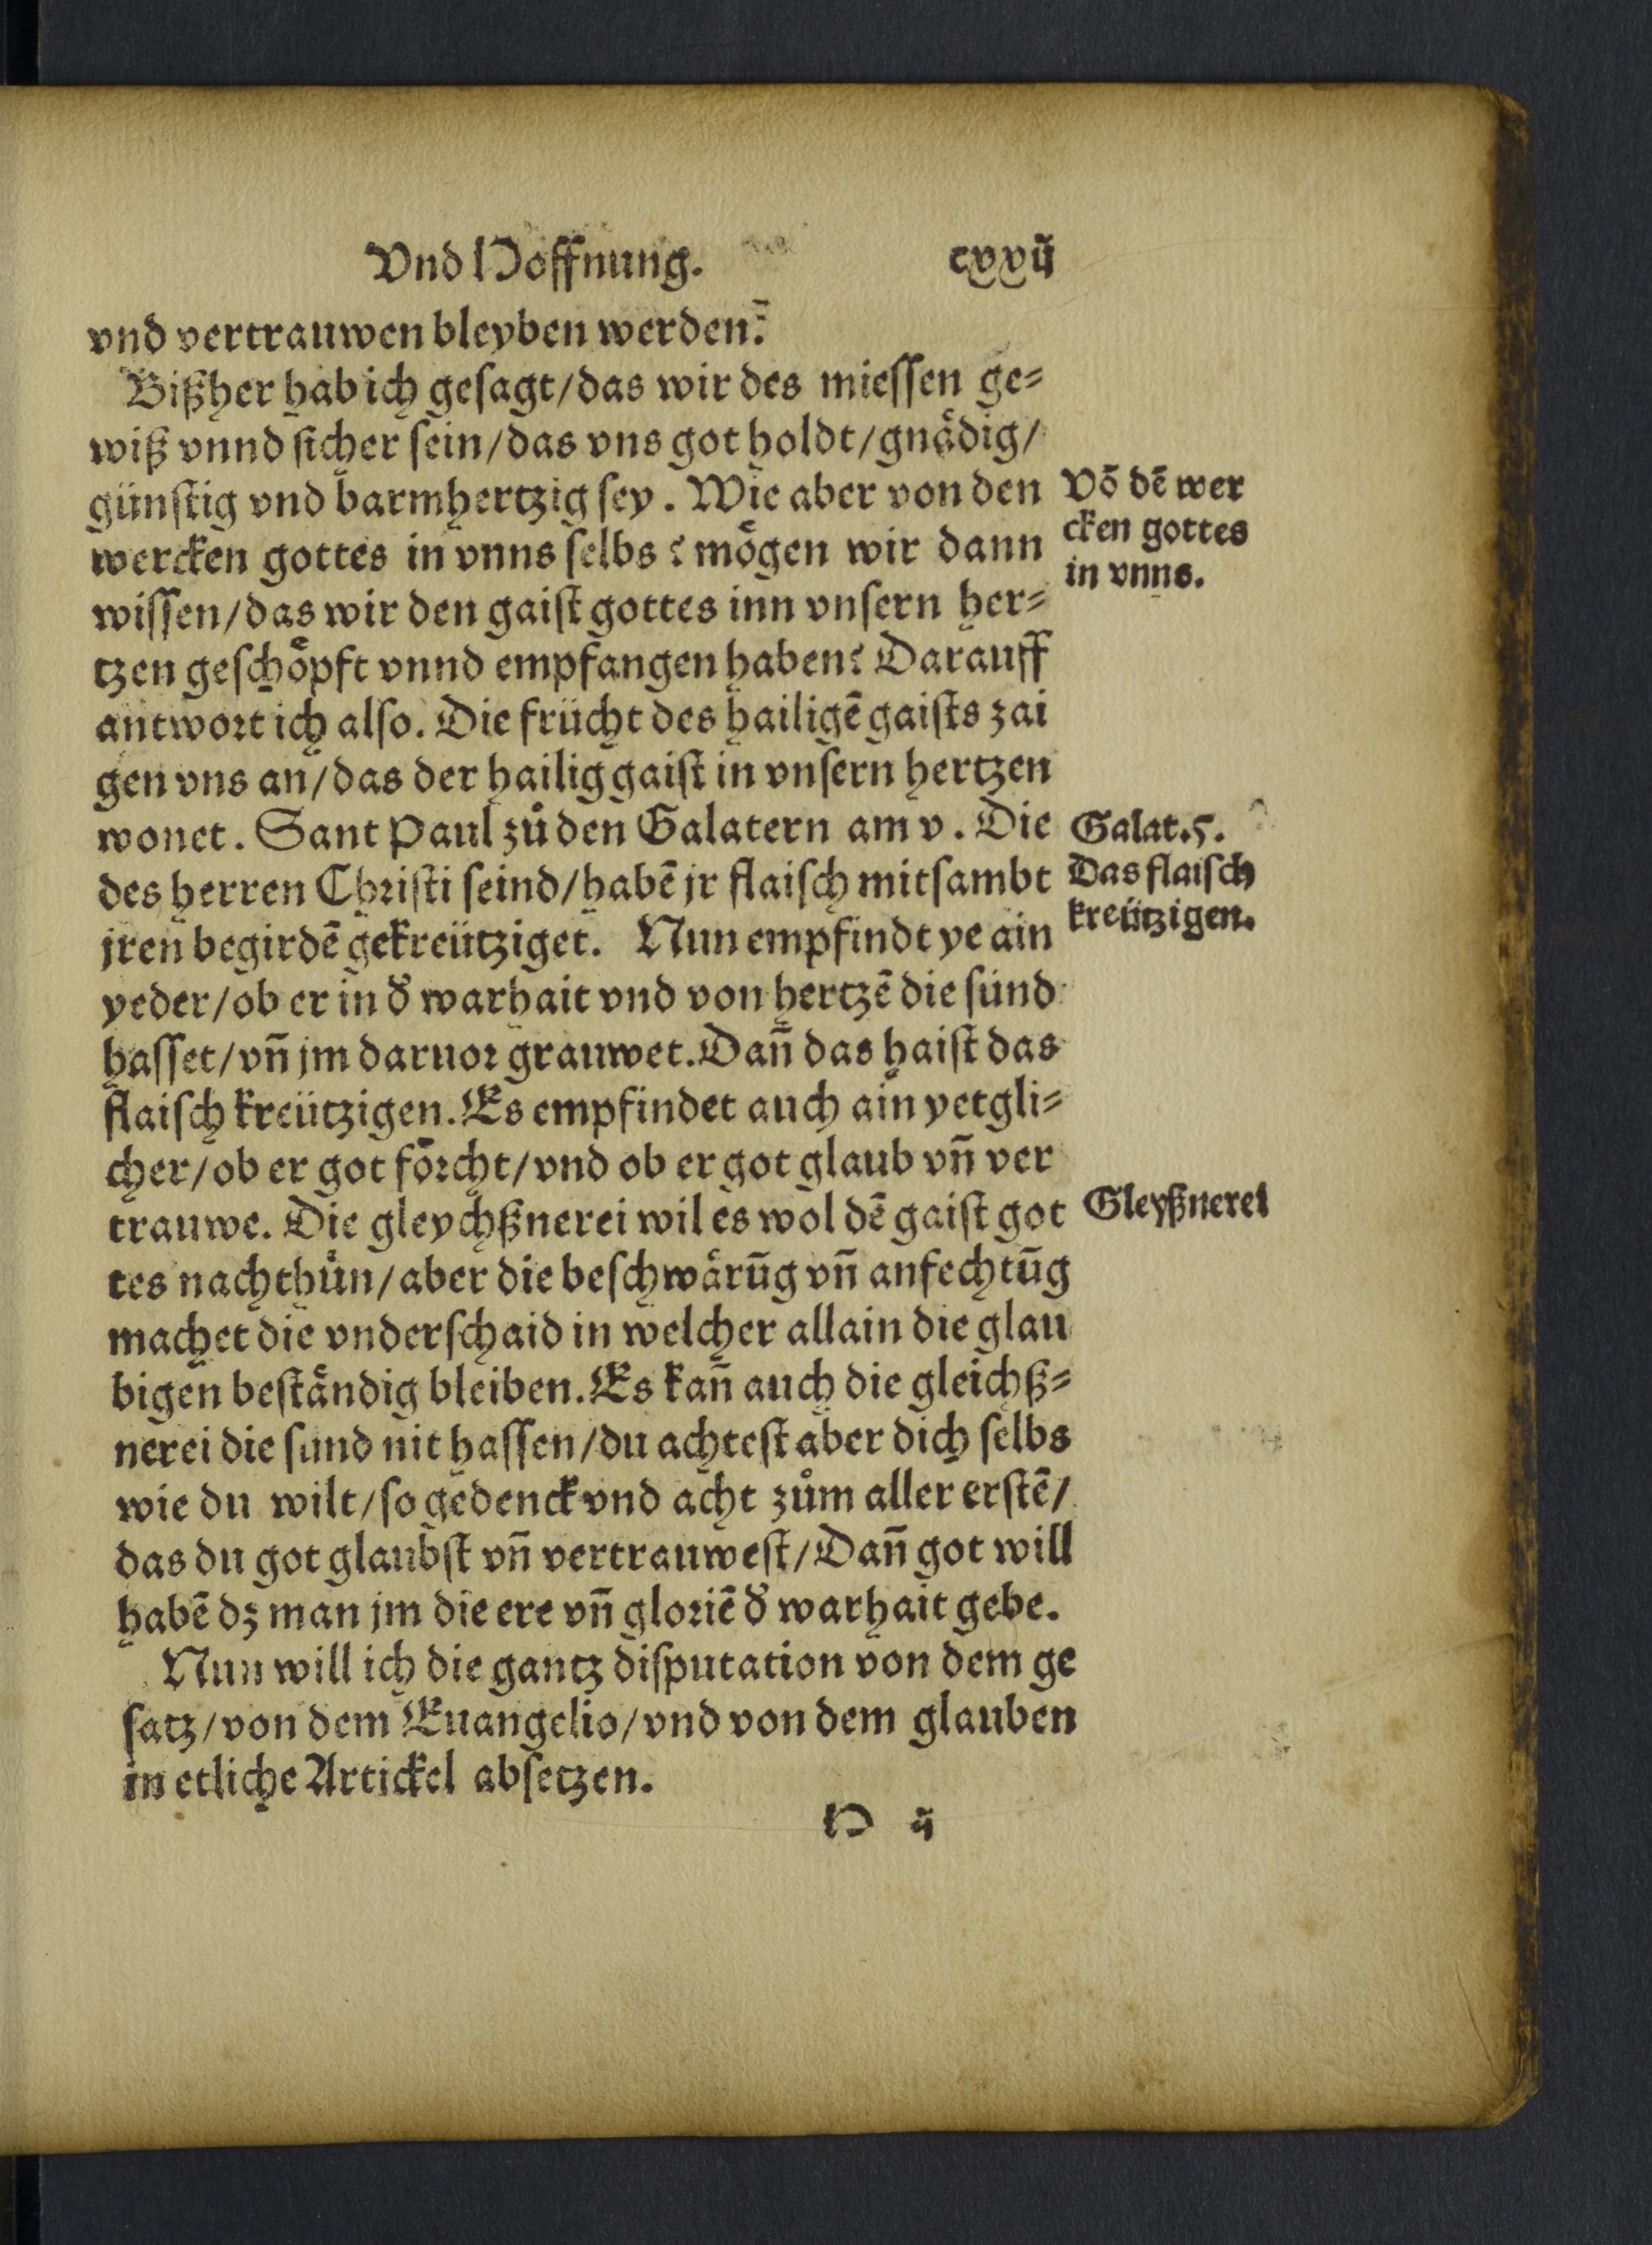 Vnd Hoffnung. cxxij
vnd vertrauwen bleyben werden?
Bißher hab ich gesagt/das wir des miessen ge⸗
wiß vnnd sicher sein/das vns got holdt/gnaͤdig/
günstig vnd barmhertzig sey. Wie aber von den
wercken gottes in vnns selbs? moͤgen wir dann
wissen/das wir den gaist gottes inn vnsern her⸗
tzen geschoͤpft vnnd empfangen haben? Darauff
antwort ich also. Die frücht des hailigē gaists zai
gen vns an/das der hailig gaist in vnsern hertzen
wonet. Sant Paul zuͦ den Galatern am v. Die
des herren Christi seind/habē jr flaisch mitsambt
jren begirdē gekreütziget. Nun empfindt ye ain
yeder/ob er in d̕ warhait vnd von hertzē die sünd
hasset/vn̄ jm daruor grauwet. Dan̄ das haist das
flaisch kreützigen. Es empfindet auch ain yetgli⸗
cher/ob er got foͤrcht/vnd ob er got glaub vn̄ ver
trauwe. Die gleychßnerei wil es wol dē gaist got
tes nachthuͦn/aber die beschwaͤrūg vn̄ anfechtūg
machet die vnderschaid in welcher allain die glau
bigen bestaͤndig bleiben. Es kan̄ auch die gleichß⸗
nerei die sund nit hassen/du achtest aber dich selbs
wie du wilt/so gedenck vnd acht zuͦm aller erstē/
das du got glaubst vn̄ vertrauwest/Dan̄ got will
habē dz man jm die ere vn̄ gloriē d̕ warhait gebe.
Nun will ich die gantz disputation von dem ge
satz/von dem Euangelio/vnd von dem glauben
in etliche Artickel absetzen.
Vō dē wer
cken gottes
in vnns.
Galat. 5.
Das flaisch
kreützigen.
Gleyßnerei
ij